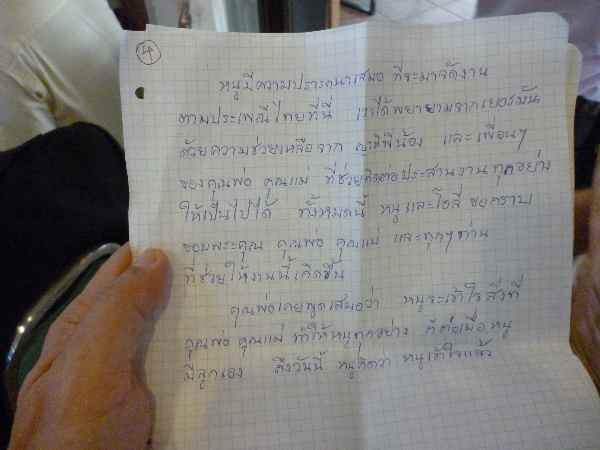 4
หนูมีความปรารถนาเสมอ ที่จะมาจัดงาน
ตามประเพณีไทยที่นี่ เราได้พยายามจากเยอรมัน
ด้วยความช่วยเหลือจาก ญาติพี่น้อง และเพื่อนๆ
ของคุณพ่อ คุณแม่ ที่ช่วยติดต่อประสานงานทุกอย่าง
ให้เป็นไปได้ ทั้งหมดนี้ หนูและโอลี่ ขอกราบ
ขอบพระคุณ คุณพ่อ คุณแม่ และทุกๆท่าน
ที่ช่วยให้งานนี้เกิดขึ้น
คุณพ่อเคยพูดเสมอว่า หนูจะเข้าใจสิ่งที่
คุณพ่อ คุณแม่ ทำให้หนูทุกอย่าง ก็ต่อเมื่อหนู
มีลูกเอง ถึงวันนี้ หนูคิดว่า หนูเข้าใจแล้ว